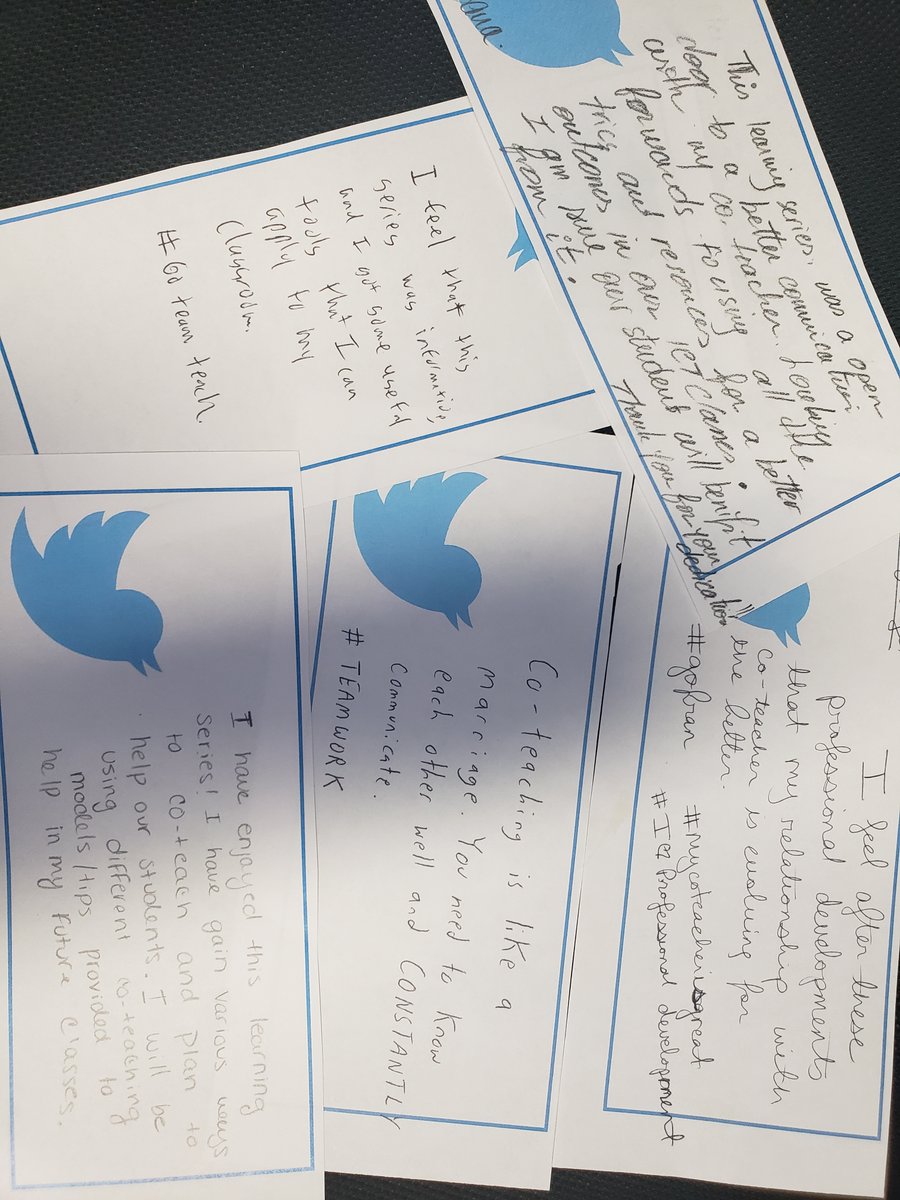 This learning series, was a open
door to a better communication
with my co. teacher. Looking
forwards to using all the
tricks and resources for a better
outcomes in our ICT Classes.
I am sure our student will benifit
from it.
Thank you for your dedication"
I feel that this
series was informative,
and I got some useful
tools that I can
apply to my
Classroom.
# Go team teach.
I feel after these
professional developments
that my relationship with
co-teacher is evolving for
the better.
#gofran #mycoteacherisgreat
#ICT Professional development
Co-teaching is like a
marriage. You need to know
each other well and CONSTANTLY
communicate.
# TEAMWORK
I have enjoyed this learning
series! I have gain various ways
to co-teach and plan to
help our students. I will be
using different co-teaching
models/tips provided to
help in my future classes.